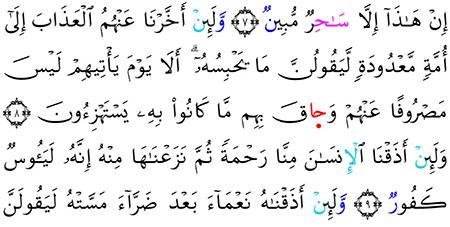 إِنْ هَٰذَآ إِلَّا سَٰحِرٌ مُّبِينٌ ٧ وَلَئِنْ أَخَّرْنَا عَنْهُمُ ٱلْعَذَابَ إِلَىٰٓ
أُمَّةٍ مَّعْدُودَةٍ لَّيَقُولُنَّ مَا يَحْبِسُهُۥٓۗ أَلَا يَوْمَ يَأْتِيهِمْ لَيْسَ
مَصْرُوفًا عَنْهُمْ وَح۪اقَ بِهِم مَّا كَانُوا۟ بِهِۦ يَسْتَهْزِءُونَ ٨
وَلَئِنْ أَذَقْنَا ٱلْإِنسَٰنَ مِنَّا رَحْمَةً ثُمَّ نَزَعْنَٰهَا مِنْهُ إِنَّهُۥ لَيَـُٔوسٌ
كَفُورٌ ٩ وَلَئِنْ أَذَقْنَٰهُ نَعْمَآءَ بَعْدَ ضَرَّآءَ مَسَّتْهُ لَيَقُولَنَّ